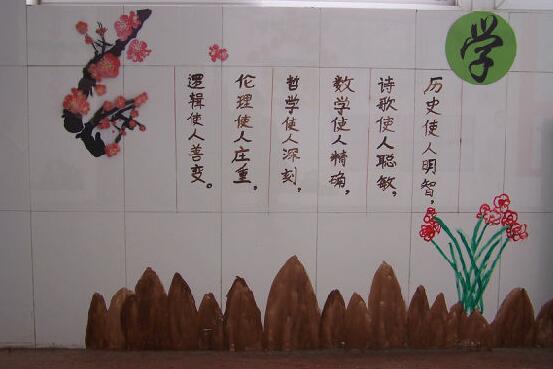 学
历史使人明智，
诗歌使人聪敏，
数学使人精确，
哲学使人深刻，
伦理使人庄重，
逻辑使人善变。